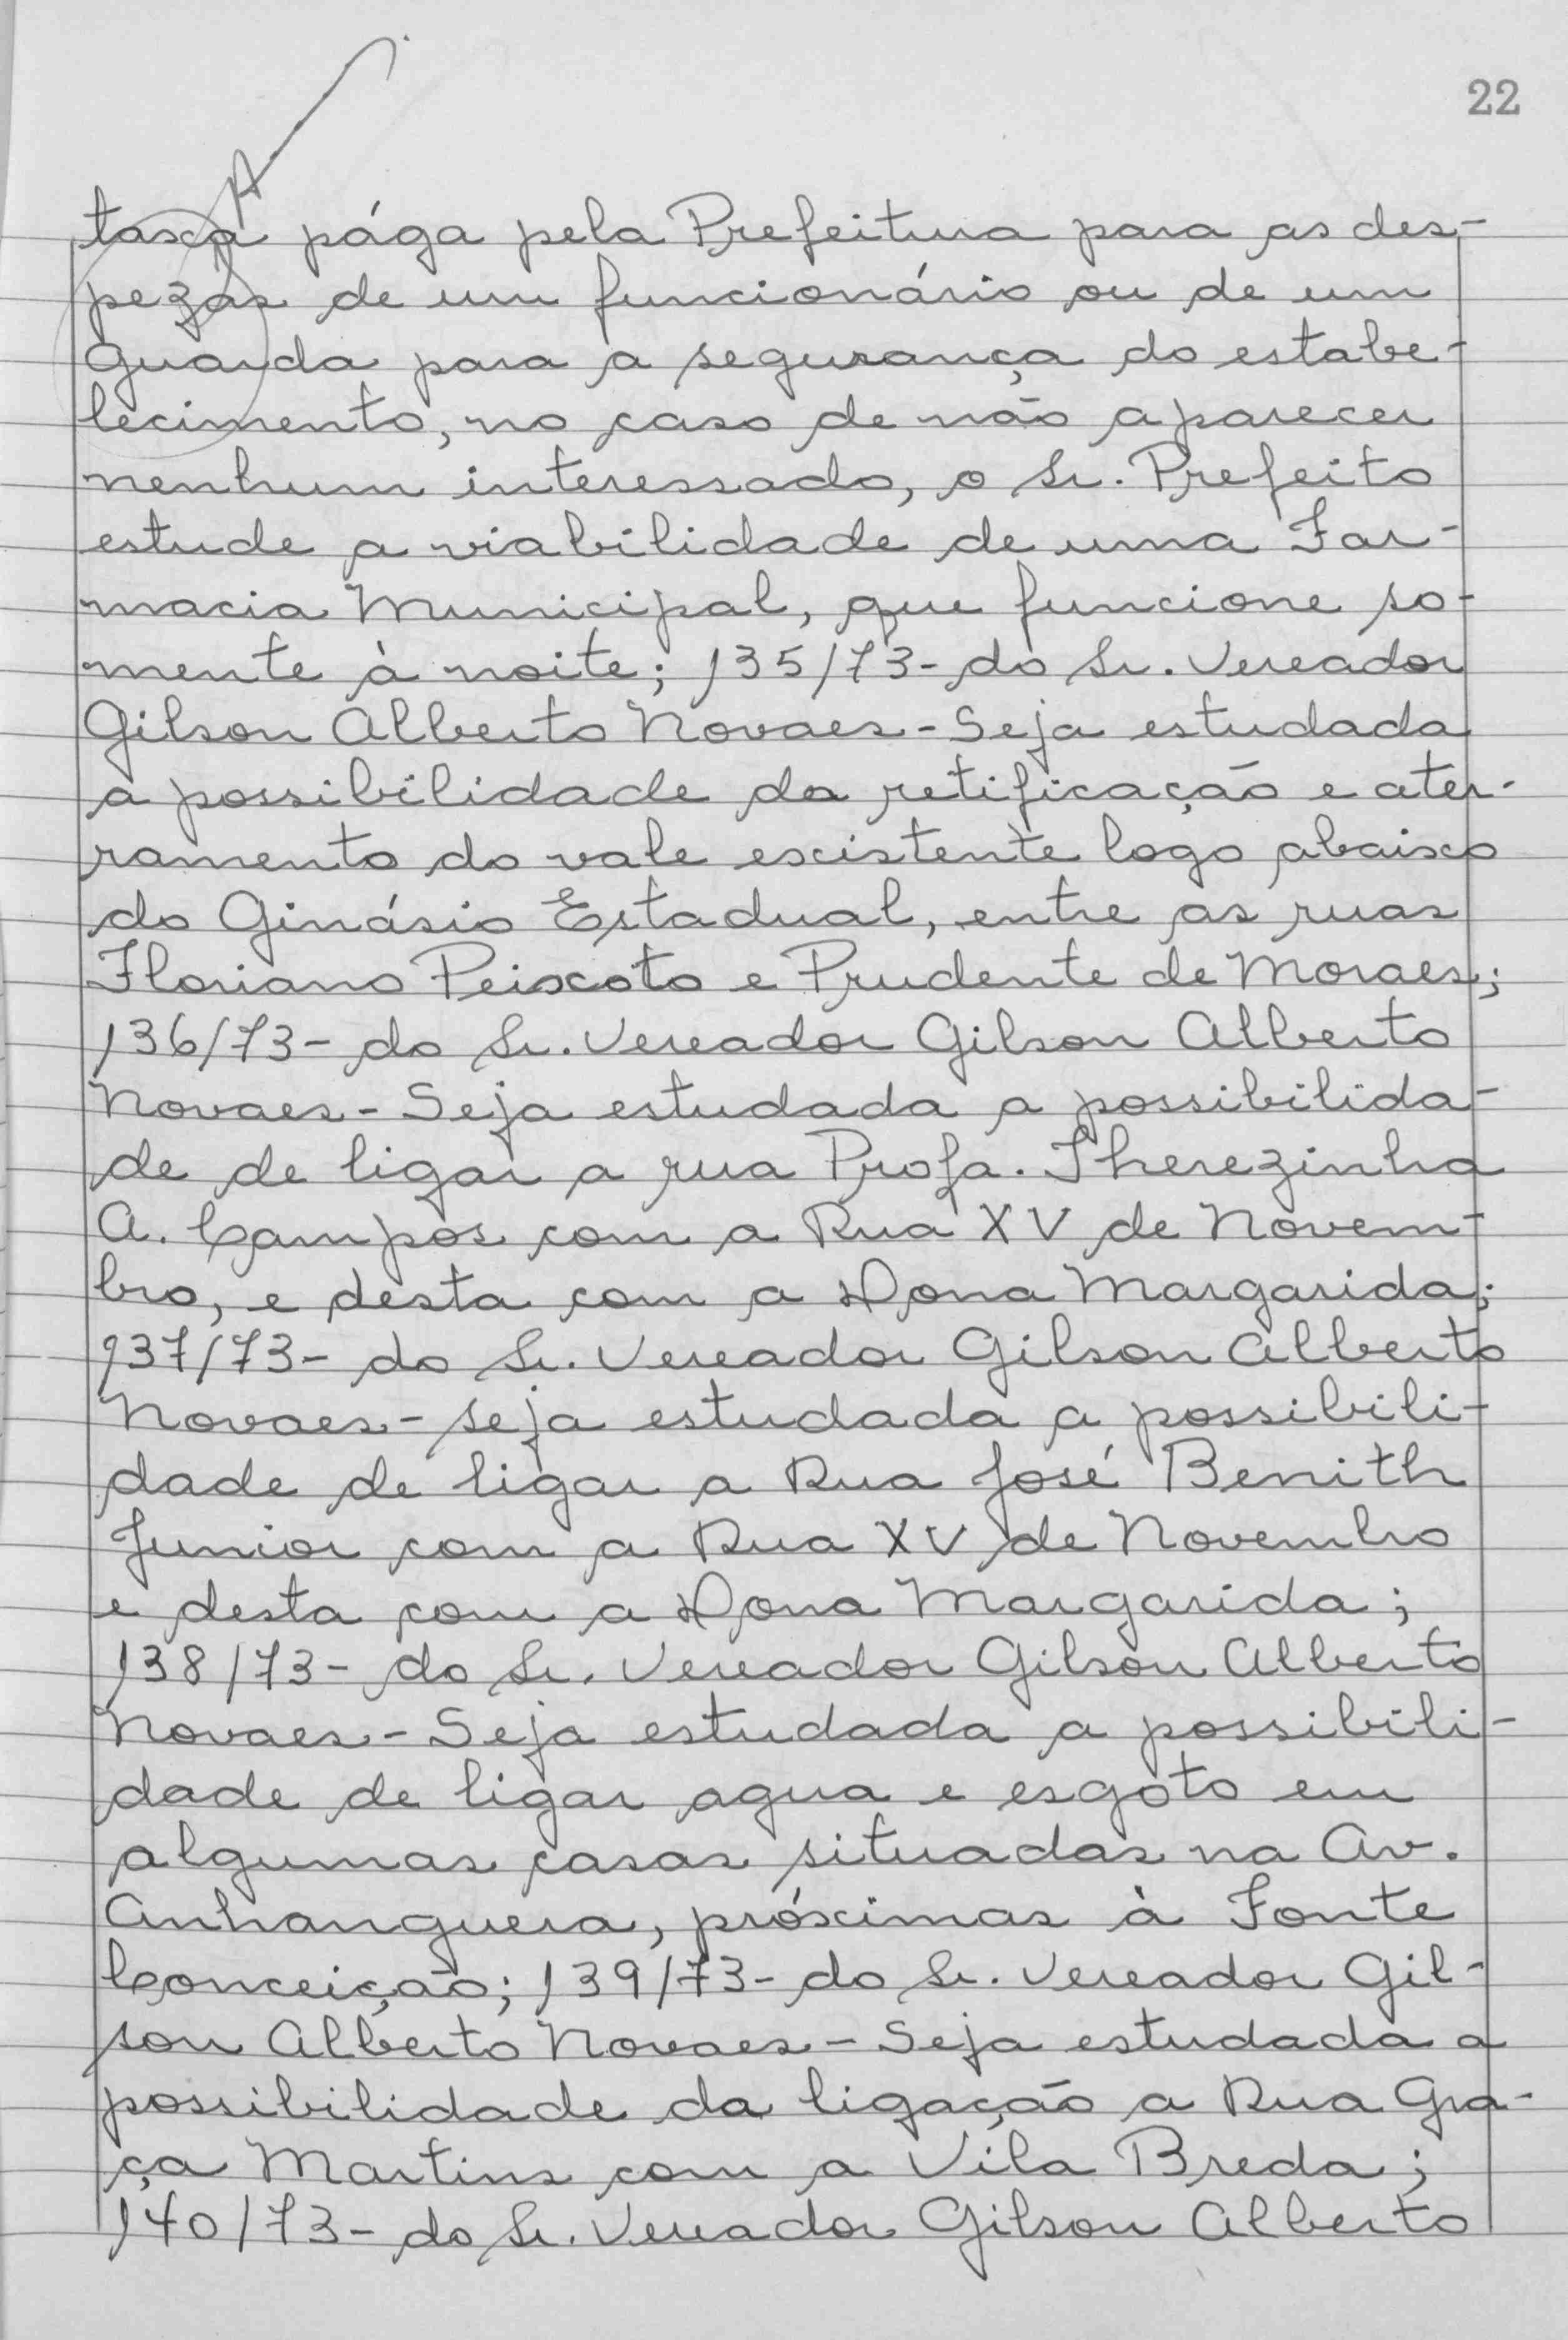 22
taxa pága pela Prefeitura para as des-
pezas de um funcionário ou de um
guarda para a segurança do estabe-
lecimento, no caso de não aparecer
nenhum interessado, o Sr. Prefeito
estude a viabilidade de uma Far-
macia Municipal, que funcione so-
mente à noite; 135/73- do Sr. Vereador
Gilson Alberto Novaes - Seja estudada
a possibilidade da retificação e ater-
ramento do vale existente logo abaixo
do Ginásio Estadual, entre as ruas
Floriano Peixoto e Prudente de Moraes;
136/73- do Sr. Vereador Gilson Alberto
Novaes - Seja estudada a possibilida-
de de ligar a rua Profa. Therezinha
A. Campos com a Rua XV de Novem-
bro, e desta com a Dona Margarida;
137/73- do Sr. Vereador Gilson Alberto
Novaes - seja estudada a possibili-
dade de ligar a Rua José Benith
Junior com a Rua XV de Novembro
e desta com a Dona Margarida;
138/73- do Sr. Vereador Gilson Alberto
Novaes - Seja estudada a possibili-
dade de ligar agua e esgoto em
algumas casas situadas na Av.
Anhanguera, próximas à Fonte
Conceição; 139/73- do Sr. Vereador Gil-
son Alberto Novaes - Seja estudada a
possibilidade da ligação a Rua Gra-
ça Martins com a Vila Breda;
140/73- do Sr. Vereador Gilson Alberto